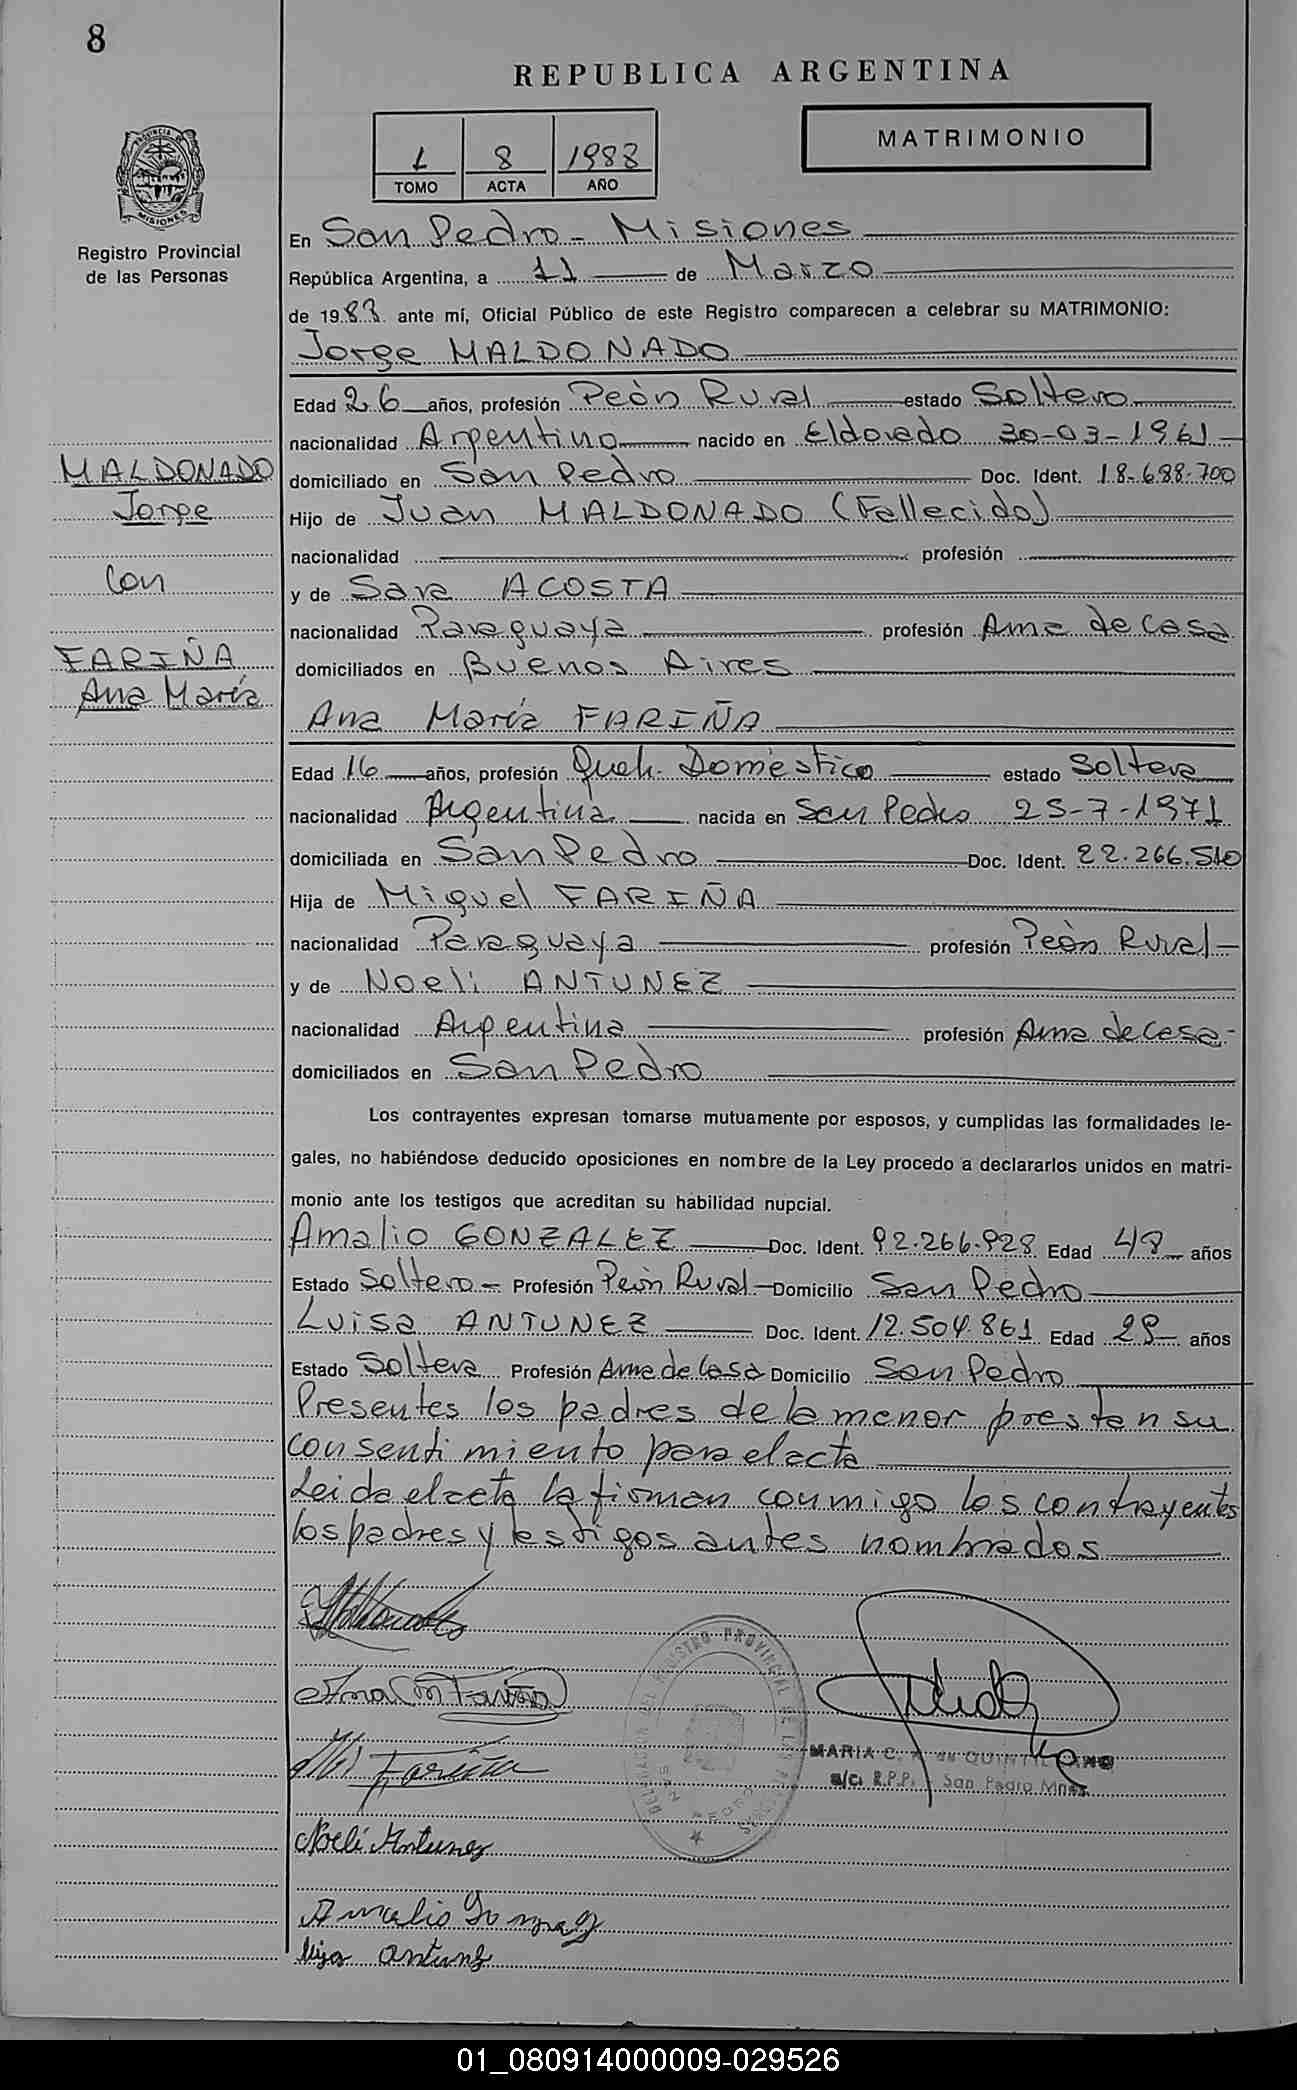 8
REPUBLICA ARGENTINA
1 8 1988
TOMO ACTA AÑO
MATRIMONIO
PROVINCIA
MISIONES
Registro Provincial
de las Personas
En San Pedro - Misiones
República Argentina, a 11 de Marzo
de 1988 ante mí, Oficial Público de este Registro comparecen a celebrar su MATRIMONIO:
Jorge MALDONADO
Edad 26 años, profesión Peòn Rural estado Soltero
nacionalidad Argentino nacido en Eldorado 30-03-1961
domiciliado en San Pedro Doc. Ident. 18-688-700
Hijo de Juan MALDONADO (Fallecido)
nacionalidad profesión
y de Sara ACOSTA
nacionalidad Paraguaya profesión Ama de Casa
domiciliados en Buenos Aires
MALDONADO
Jorge
Con
FARIÑA
Ana María
Ana María FARIÑA
Edad 16 años, profesión Queh. Doméstico estado Soltera
nacionalidad Argentina nacida en San Pedro 25-7-1971
domiciliada en San Pedro Doc. Ident. 22.266.510
Hija de Miguel FARIÑA
nacionalidad Paraguaya profesión Peòn Rural
y de Noeli ANTUNEZ
nacionalidad Argentina profesión Ama de Casa
domiciliados en San Pedro
Los contrayentes expresan tomarse mutuamente por esposos, y cumplidas las formalidades le-
gales, no habiéndose deducido oposiciones en nombre de la Ley procedo a declararlos unidos en matri-
monio ante los testigos que acreditan su habilidad nupcial.
Amalio GONZALEZ Doc. Ident. 92.266.928 Edad 48 años
Estado Soltero Profesión Peòn Rural Domicilio San Pedro
Luisa ANTUNEZ Doc. Ident. 12.504.861 Edad 28 años
Estado Soltera Profesión Ama de Casa Domicilio San Pedro
Presentes los padres de la menor prestan su
consentimiento para el acta
Leida el acta la firman conmigo los contrayentes
los padres y testigos antes nombrados
Ana M Fariña
Fariña
MARIA C. A. de QUINTILIANO
a/c. R.P.P. - San Pedro Mnes.
DELEGACION DEL REGISTRO PROVINCIAL DE LAS PERSONAS
SAN PEDRO
Noeli Antunez
Amalio Gonzalez
luisa antunez
01_080914000009-029526